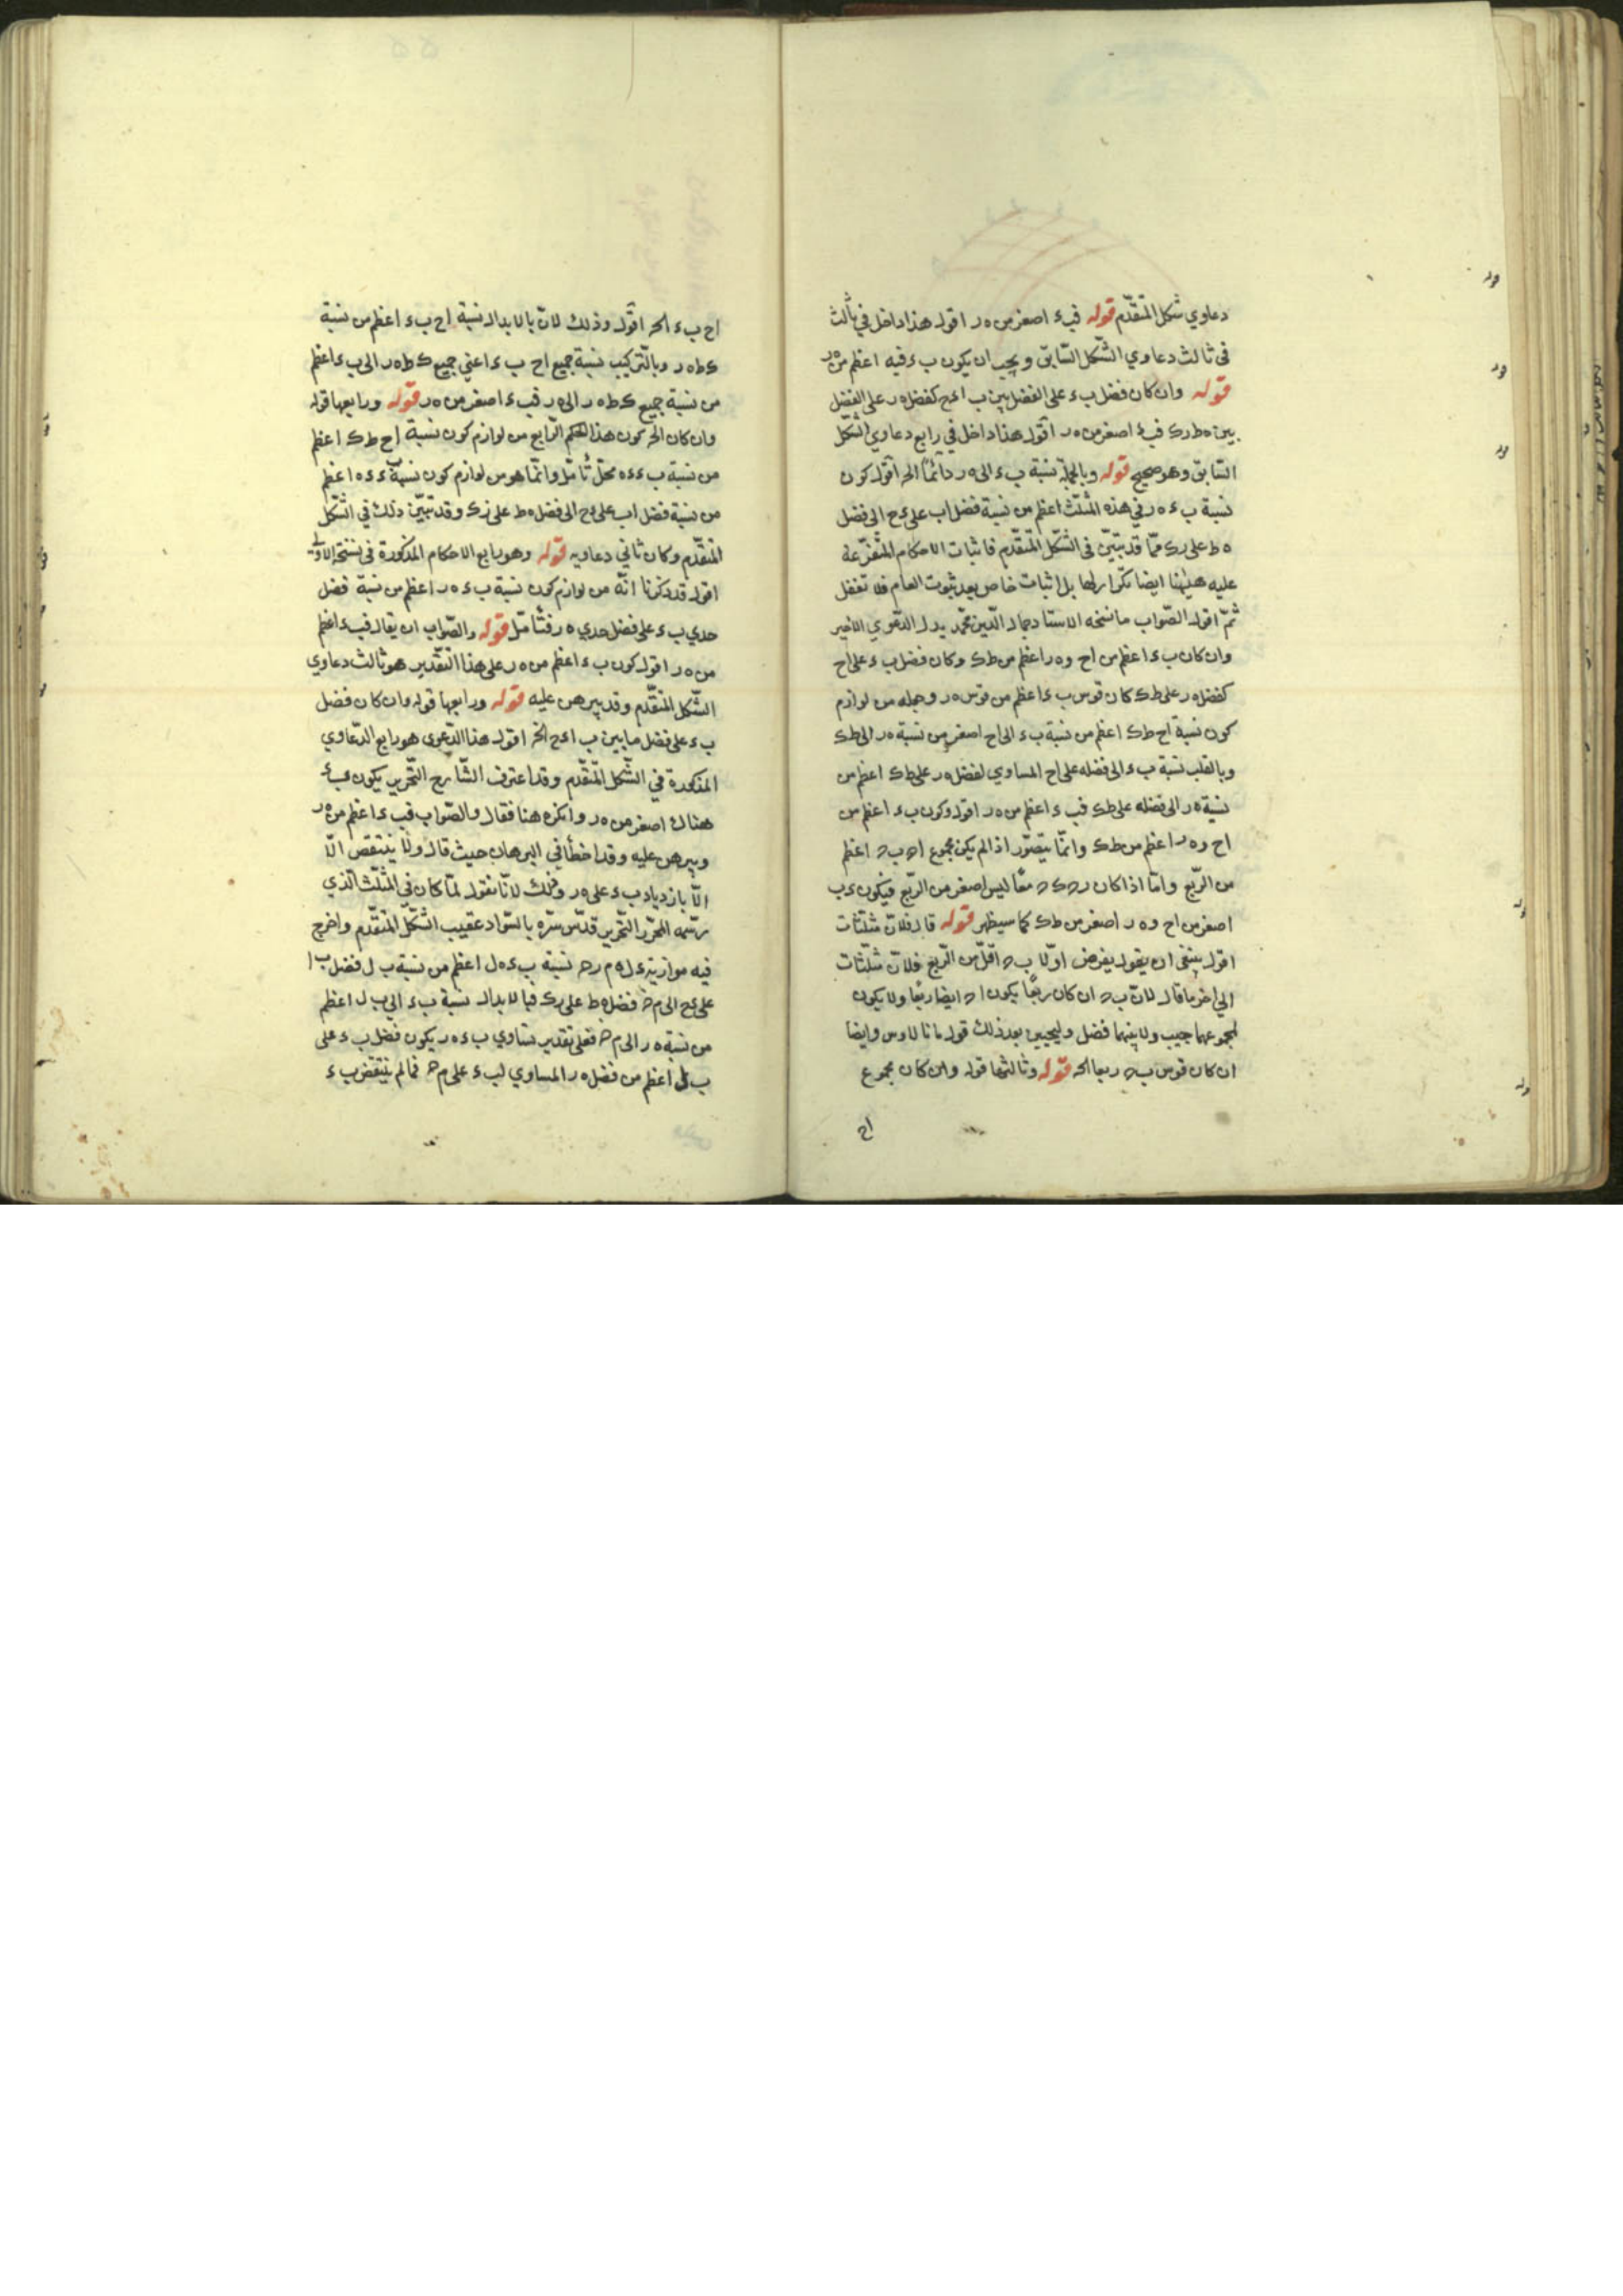 دعاوي شكل المتقدّم قوله فب ء اصغر من ه ر اقول هذا داخل في ثالث
في ثالث دعاوي الشّكل السّابق ويجب ان يكون ب ء فيه اعظم من ه ر
قوله وان كان فضل ب ء على الفضل بين ب ا ء ح كفضل ه ر على الفضل
بين ه ط ر ك فب ء اصغر من ه ر اقول هذا داخل في رابع دعاوي الشّكل
السّابق وهو صحيح قوله وبالجملة نسبة ب ء الى ه ر دائمًا الخ اقول كون
نسبة ب ء ه ر في هذه المثلّث اعظم من نسبة فضل ا ب على ء ح الى فضل
ه ط على ر ك ممّا قد تبيّن في الشّكل المتقدّم فاثبات الاحكام المتفرّعة
عليه ههنا ايضا تكرار لها بل اثبات خاص بعد ثبوت العام فلا تغفل
ثمّ اقول الصّواب ما نسخه الاستاد جمال الدّين محمّد بدل الدّعوي الاخير
وان كان ب ء اعظم من ا ح و ه ر اعظم من ط ك وكان فضل ب ء على ا ح
كفضل ه ر على ط ك كان قوس ب ء اعظم من قوس ه ر وجعله من لوازم
كون نسبة ا ح ط ك اعظم من نسبة ب ء الى ا ح اصغر من نسبة ه ر الى ط ك
وبالقلب نسبة ب ء الى فضله على ا ح المساوي لفضل ه ر على ط ك اعظم من
نسبة ه ر الى فضله على ط ك فب ء اعظم من ه ر اقول وكون ب ء اعظم من
ا ح و ه ر اعظم من ط ك وانّما يتصوّر اذا لم يكن مجموع ا ح ب ح اعظم
من الرّبع وامّا اذا كان ر ح ك ح معًا ليس اصغر من الرّبع فيكون ء ب
اصغر من ا ح و ه ر اصغر من ط ك كما سيظهر قوله قال فلانّ مثلّثات
اقول ينبغي ان يقول يفرض اوّلا ب ح اقلّ من الرّبع فلانّ مثلّثات
الى اخر ما قال لانّ ب ح ان كان ربعًا يكون ا ح ايضا ربعًا ولا يكون
لمجموعهما جيب ولا بينهما فضل وليجيئ بعد ذلك قول مانالاوس وايضا
ان كان قوس ب ح ربعا الخ قوله وثالثها قوله وان كان مجموع
ا ح
ا ح ب ء الخ اقول وذلك لانّ بالابدال نسبة ا ح ب ء اعظم من نسبة
ك ط ه ر وبالتّركيب نسبة جميع ا ح ب ء اعني جميع ك ط ه ر الى ب ء اعظم
من نسبة جميع ك ط ه ر الى ه ر فب ء اصغر من ه ر قوله ورابعها قوله
وان كان الخ كون هذا الحكم الرّابع من لوازم كون نسبة ا ح ط ك اعظم
من نسبة ب ء ه ه محلّ تأمّل وانّما هو من لوازم كون نسبة ب ء ه اعظم
من نسبة فضل ا ب على ء ح الى فضل ه ط على ز ك وقد تبيّن ذلك في الشّكل
المتقدّم وكان ثاني دعاويه قوله وهو رابع الاحكام المذكورة في نسخة الاولى
اقول قد ذكرنا انّه من لوازم كون نسبة ب ء ه ر اعظم من نسبة فضل
حدي ب ء على فضل حدي ه ر فتأمّل قوله والصّواب ان يقال فب ء اعظم
من ه ر اقول كون ب ء اعظم من ه ر على هذا التّقدير هو ثالث دعاوي
الشّكل المتقدّم وقد يبرهن عليه قوله ورابعها قوله وان كان فضل
ب ء على فضل ما بين ب ا ء ح الخ اقول هذا الدّعوى هو رابع الدّعاوي
المذكورة في الشّكل المتقدّم وقد اعترف الشّارح التّحرير بكون ب ء
هناك اصغر من ه ر وانكره هنا فقال والصّواب فب ء اعظم من ه ر
ويبرهن عليه وقد اخطأ في البرهان حيث قال ولا ينتقص الّا
الّا بازدياد ب ء على ه ر وذلك لانّا نقول لمّا كان في المثلّث الّذي
رسّمه المحرّر التّحرير قدّس سرّه بالسّواد عقيب الشّكل المتقدّم واخرج
فيه موازية ء ل ه م ر ح نسبة ب ء ه ل اعظم من نسبة ب ل فضل ب ا
على ء ح الى م ح فضل ه ط على ر ك فبالابدال نسبة ب ء الى ب ل اعظم
من نسبة ه ر الى م ح فعلى تقدير تساوي ب ء ه ر يكون فضل ب ء على
ب ل اعظم من فضل ه ر المساوي لب ء على م ح فما لم ينتقض ب ء